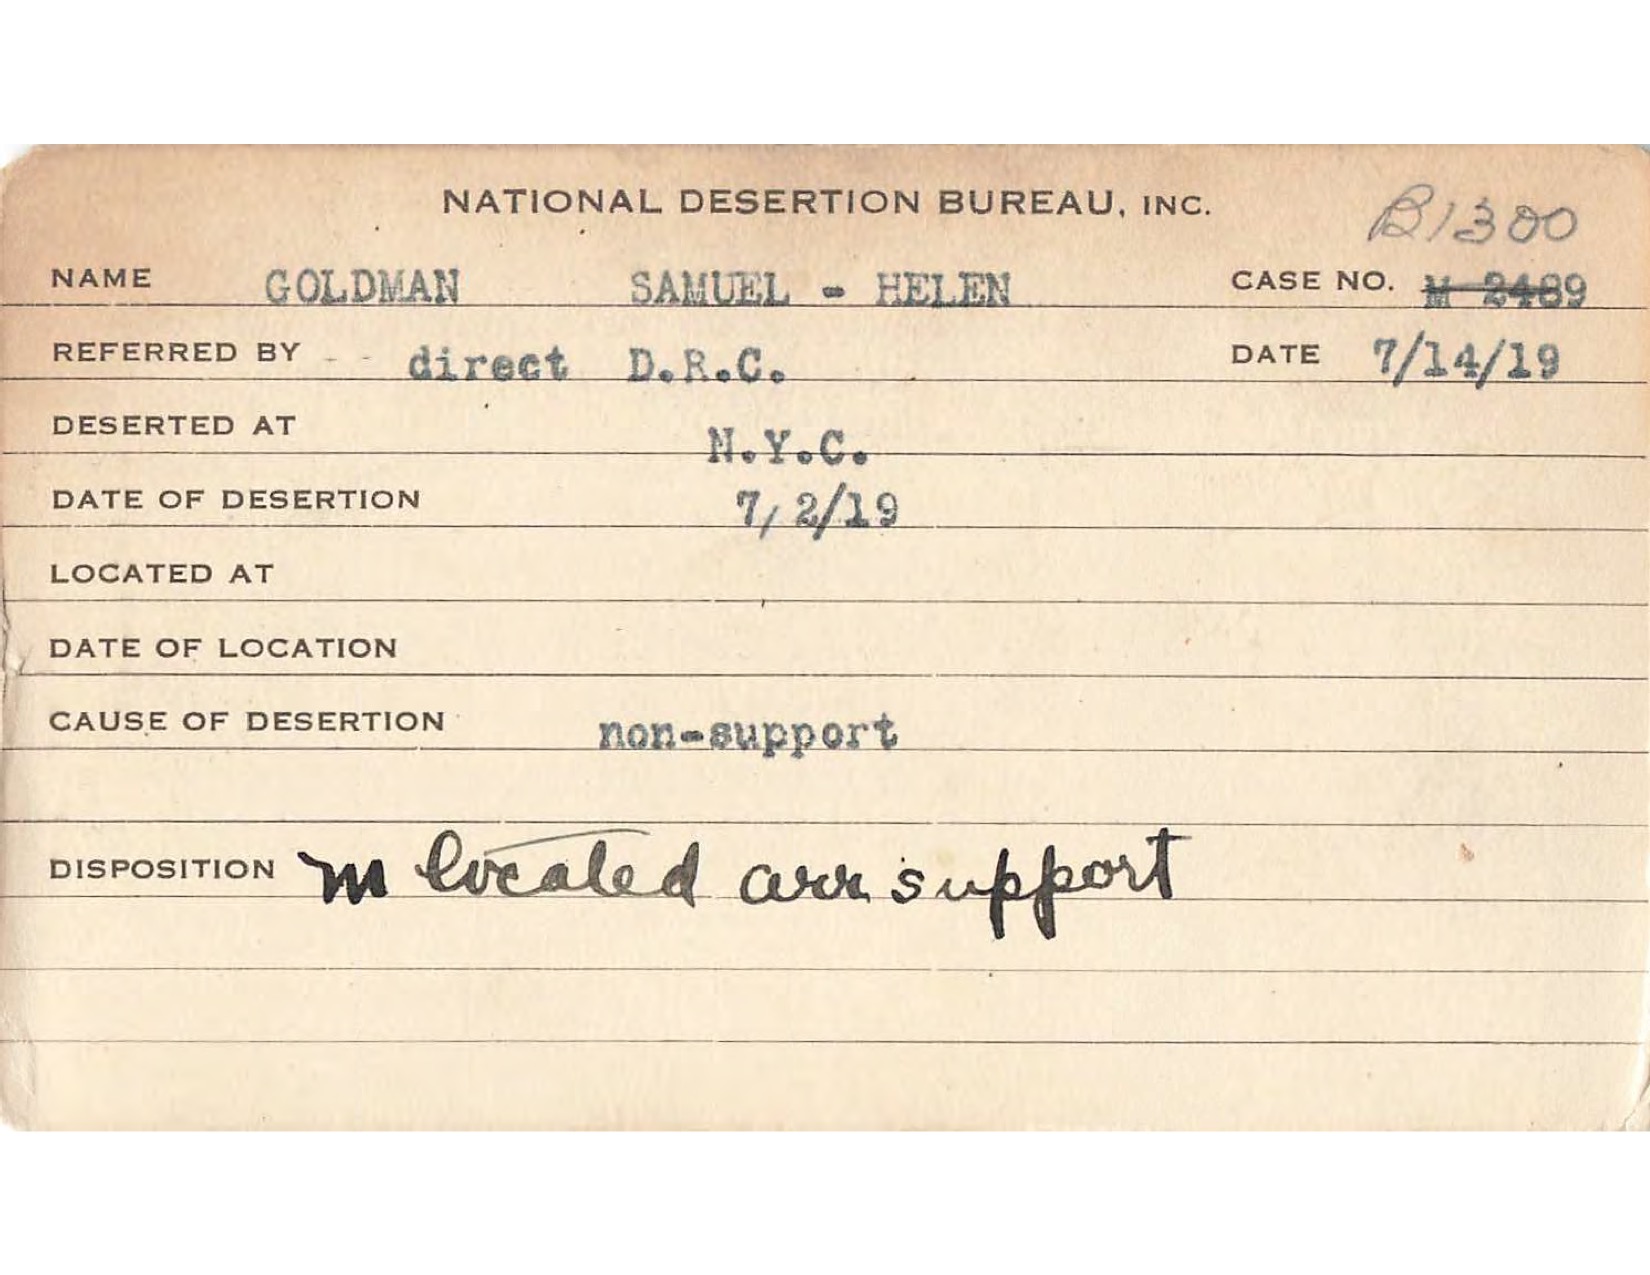 NATIONAL DESERTION BUREAU, INC.
B1300
NAME GOLDMAN SAMUEL - HELEN CASE NO. M 2489
REFERRED BY direct D.R.C. DATE 7/14/19
DESERTED AT N.Y.C.
DATE OF DESERTION 7/2/19
LOCATED AT
DATE OF LOCATION
CAUSE OF DESERTION non-support
DISPOSITION M located arr support